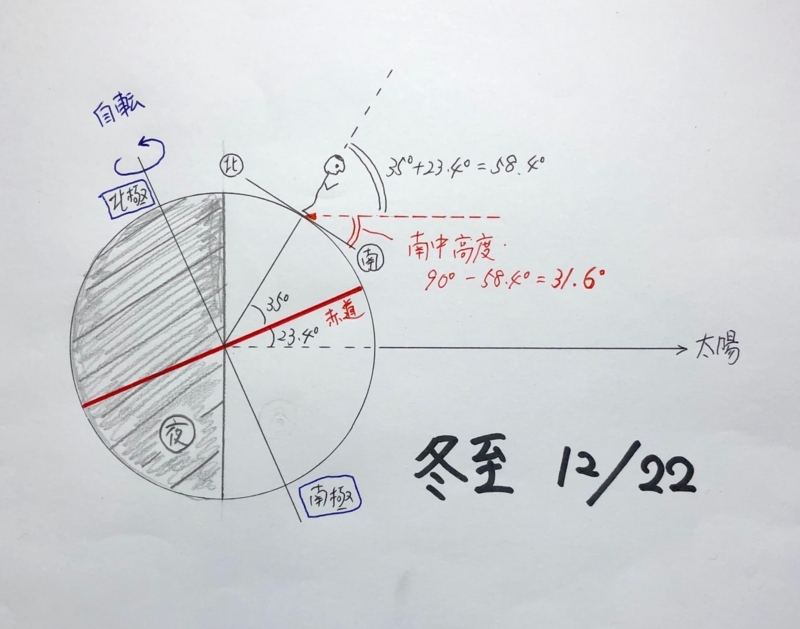 自転
北極
北
35°+23.4°=58.4°
南
南中高度.
90°-58.4°=31.6°
35°
赤道
23.4°
太陽
夜
冬至 12/22
南極